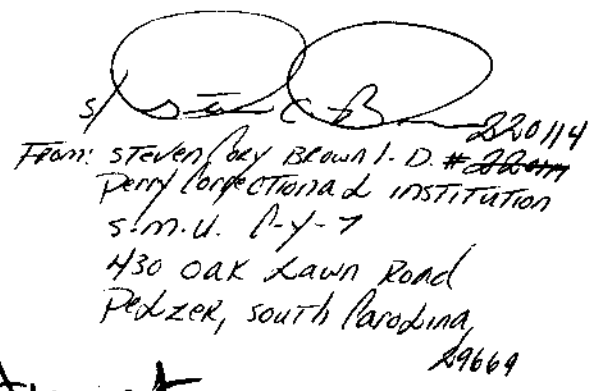 s/ Steven C B
220114
From: STEVEN CORY BROWN I. D. # 
Perry Correctional INSTITUTION
S.M.U. C-Y-7
430 OAK LAWN Road
PELZER, SOUTH CAROLINA,
29669